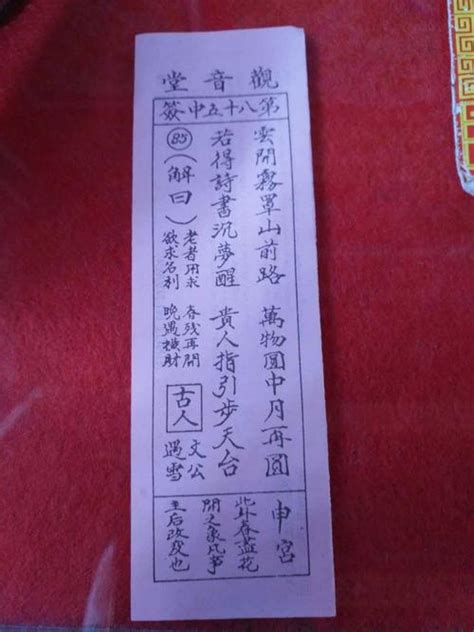 觀音堂
第八十五中簽
雲開霧罩山前路 萬物圓中月再圓
若得詩書沉夢醒 貴人指引步天台
85（解曰）
老者用求 春残再開
欲求名利 晚遇橫財
古人
文公
遇雪
申宮
此卦春盡花
開之象凡事
主后改变也